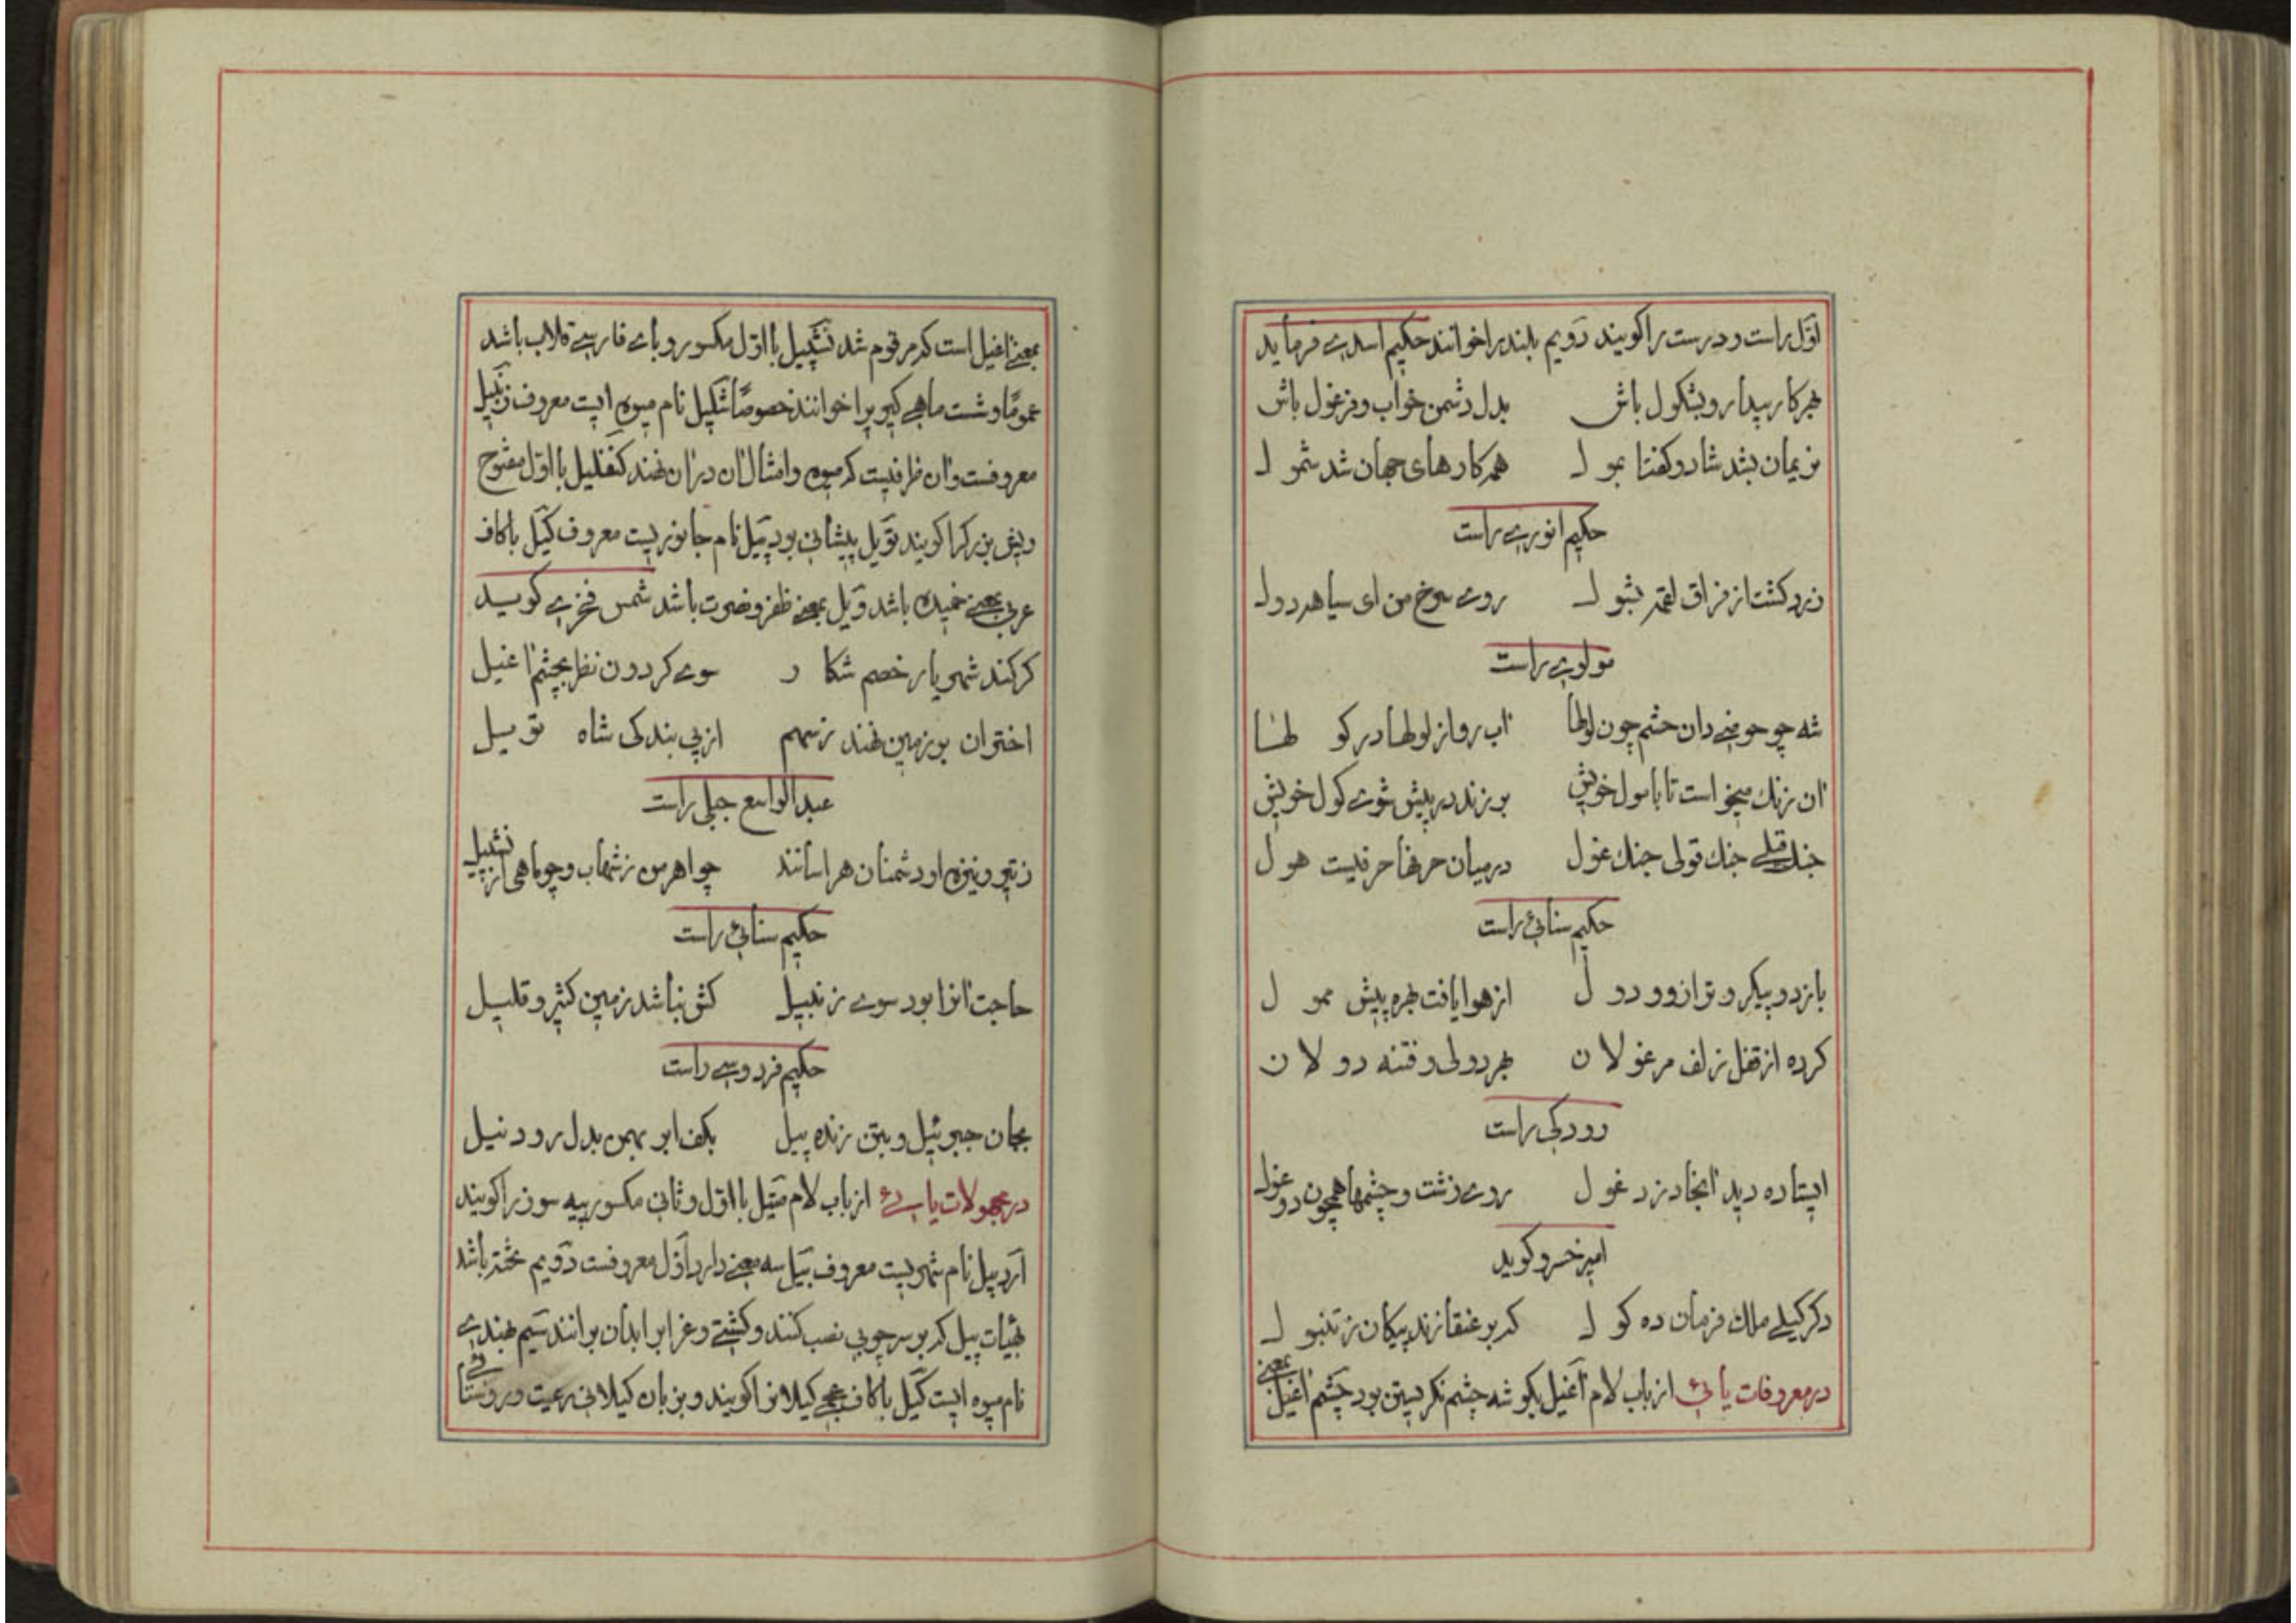 اوّل راست و درست را کویند دویم بلند را خوانند حکیم اسدی فرماید
بهر کار بیدار و بشکول باش بدل دشمن خواب و فرغول باش
نریمان بشد شاد و کفتا بمول همه کارهای جهان شد شمول
حکیم انوری راست
زرد کشت از فراق لقمه بشول روی سرخ من ای سیاهه دول
مولوی راست
شه چو حوضی دان حشم چون لولها اب روان از لولها در کولها
ان زنک میخواست تا با مول خویش برزند در پیش شوی کول خویش
جنک فعلی جنک قولی جنک غول در میان حرفها حرفیست هول
حکیم سنائی راست
باز دو پیکر و ترازو و دول از هوا یافت بهره پیش ممول
کرده از قفل زلف مرغولان بهر دولی و فتنه دولان
رودکی راست
ایستاده دید انجا دزد غول روی زشت و چشمها همچون دو غول
امیر خسرو کوید
دکر کیلی ملك فرمان ده کول که بر عنقا زند پیکان ز تنبول
در معروفات یائی از باب لام اغیل بکوشه چشم نکریستن بود چشم اغیل بمعنی
بمعنی اغیل است که مرقوم شد نشپیل با اوّل مکسور و بای فارسی قلاب باشد
عموماً و شست ماهی کیر را خوانند خصوصاً شکیل نام میوه ایست معروف زنبیل
معروفست و ان ظرفیست که میوه و امثال ان در ان نهند کنفلیل با اوّل مفتوح
و ریش بزرک را کویند تویل پیشانی بود پیل نام جانوریست معروف کیل با کاف
عربی بمعنی خمیده باشد ویل بمعنی ظفر و نصرت باشد شمس فخری کوید
کر کند شهریار خصم شکار سوی کردون نظر بچشم اغیل
اختران بر زمین نهند ز سهم از پی بندکی شاه تویل
عبد الواسع جبلی راست
ز تیر و نیزه او دشمنان هراسانند چو اهرمن ز شهاب و چو ماهی از نشپیل
حکیم سنائی راست
حاجت انرا بود سوی زنبیل کش نباشد زمین کثیر و قلیل
حکیم فردوسی راست
بجان جبرئیل و بتن زنده پیل بکف ابر بهمن بدل رود نیل
در مجهولات یائی از باب لام متیل با اوّل و ثانی مکسور پیه سوز را کویند
اردبیل نام شهریست معروف بیل سه معنی دارد اوّل معروفست دویم تخته باشد
بهیات بیل که بر سر چوبی نصب کنند و کشتی و غراب را بدان برانند سیم بهندی
نام میوه ایست کیل با کاف عجمی کیلانرا کویند و بزبان کیلانی رعیت و روستائی